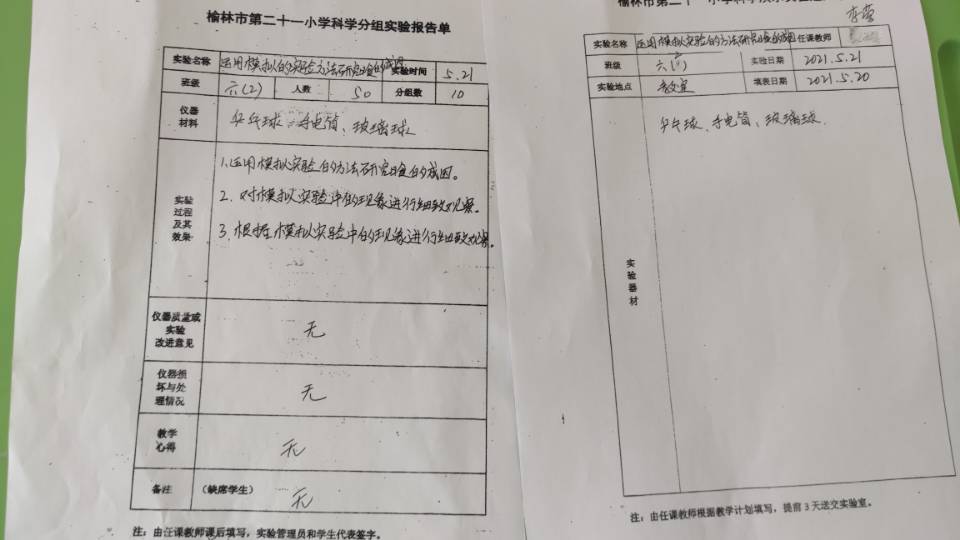 榆林市第二十一小学科学分组实验报告单
实验名称 运用模拟的实验方法研究日食的成因 实验时间 5.21
班级 六(2) 人数 50 分组数 10
仪器材料 乒乓球、手电筒、玻璃球
实验过程及其效果
1.运用模拟实验的方法研究日食的成因。
2.对模拟实验中的现象进行细致观察。
3.根据模拟实验中的现象进行细致观察。
仪器质量或实验改进意见 无
仪器损坏与处理情况 无
教学心得 无
备注 (缺席学生) 无
注：由任课教师课后填写，实验管理员和学生代表签字。
榆林市第二十一小学科学
实验名称 运用模拟实验的方法研究日食的成因 任课教师
班级 六 实验日期 2021.5.21
实验地点 教室 填表日期 2021.5.20
实验器材 乒乓球、手电筒、玻璃球.
注：由任课教师根据教学计划填写，提前3天送交实验室。